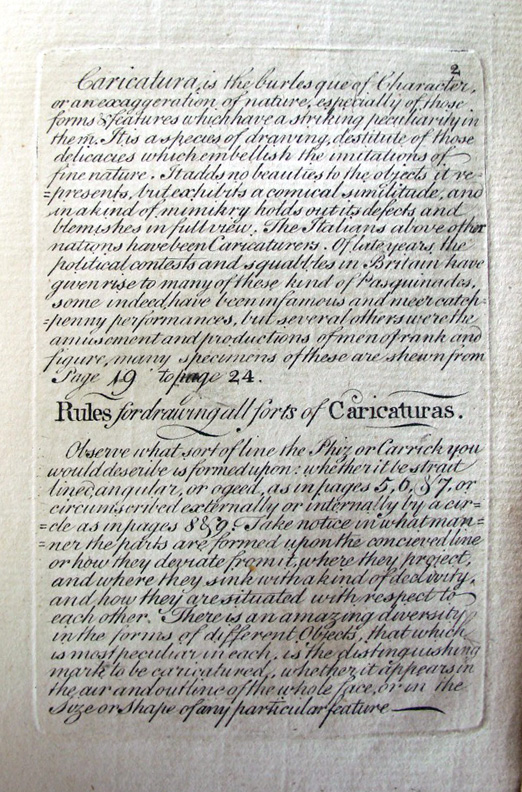 2
Caricatura, is the burlesque of Character,
or an exaggeration of nature, especially of those
forms & features which have a striking peculiarity in
them. It is a species of drawing, destitute of those
delicacies which embellish the imitations of
fine nature. It adds no beauties to the objects it re-
=presents, but exhibits a comical similitude, and
in a kind of mimikry holds out its defects and
blemishes in full view. The Italians above other
nations have been Caricaturers. Of late years, the
political contests and squabbles in Britain have
given rise to many of these kind of Pasquinades,
some indeed, have been infamous and meer catch-
=penny performances, but several others were the
amusement and productions of men of rank and
figure, many specimens of these are shewn from
Page 19 to page 24.
Rules for drawing all sorts of Caricaturas.
Observe what sort of line the Phiz or Carrick you
would describe is formed upon: whether it be strait
lined, angular, or ogeed, as in pages 5, 6, & 7, or
circumscribed externally or internally by a cir=
=cle as in pages 8 & 9. Take notice in what man=
=ner the parts are formed upon the concieved line
or how they deviate from it, where they project,
and where they sink with a kind of declivity,
and how they are situated with respect to
each other. There is an amazing diversity
in the forms of different Objects, that which
is most peculiar in each, is the distinguishing
mark to be caricatured, whether it appears in
the air and outline of the whole face, or in the
Size or Shape of any particular feature